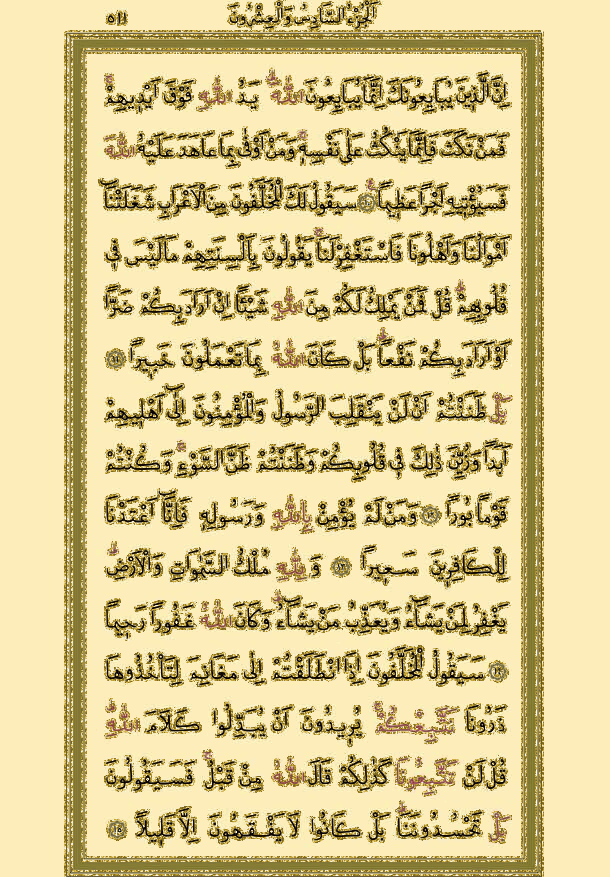 ٥١١ الجزء السادس والعشرون
إِنَّ الَّذِينَ يُبَايِعُونَكَ إِنَّمَا يُبَايِعُونَ اللهَ يَدُ اللهِ فَوْقَ أَيْدِيهِمْ
فَمَنْ نَكَثَ فَإِنَّمَا يَنْكُثُ عَلَى نَفْسِهِ وَمَنْ أَوْفَى بِمَا عَاهَدَ عَلَيْهُ اللهَ
فَسَيُؤْتِيهِ أَجْرًا عَظِيمًا ﴿١٠﴾ سَيَقُولُ لَكَ الْمُخَلَّفُونَ مِنَ الْأَعْرَابِ شَغَلَتْنَا
أَمْوَالُنَا وَأَهْلُونَا فَاسْتَغْفِرْ لَنَا يَقُولُونَ بِأَلْسِنَتِهِمْ مَا لَيْسَ فِي
قُلُوبِهِمْ قُلْ فَمَنْ يَمْلِكُ لَكُمْ مِنَ اللهِ شَيْئًا إِنْ أَرَادَ بِكُمْ ضَرًّا
أَوْ أَرَادَ بِكُمْ نَفْعًا بَلْ كَانَ اللهُ بِمَا تَعْمَلُونَ خَبِيرًا ﴿١١﴾
بَلْ ظَنَنْتُمْ أَنْ لَنْ يَنْقَلِبَ الرَّسُولُ وَالْمُؤْمِنُونَ إِلَى أَهْلِيهِمْ
أَبَدًا وَزُيِّنَ ذَلِكَ فِي قُلُوبِكُمْ وَظَنَنْتُمْ ظَنَّ السَّوْءِ وَكُنْتُمْ
قَوْمًا بُورًا ﴿١٢﴾ وَمَنْ لَمْ يُؤْمِنْ بِاللهِ وَرَسُولِهِ فَإِنَّا أَعْتَدْنَا
لِلْكَافِرِينَ سَعِيرًا ﴿١٣﴾ وَلِلهِ مُلْكُ السَّمَوَاتِ وَالْأَرْضِ
يَغْفِرُ لِمَنْ يَشَاءُ وَيُعَذِّبُ مَنْ يَشَاءُ وَكَانَ اللهُ غَفُورًا رَحِيمًا
﴿١٤﴾ سَيَقُولُ الْمُخَلَّفُونَ إِذَا انْطَلَقْتُمْ إِلَى مَغَانِمَ لِتَأْخُذُوهَا
ذَرُونَا نَتَّبِعْكُمْ يُرِيدُونَ أَنْ يُبَدِّلُوا كَلَامَ اللهِ
قُلْ لَنْ تَتَّبِعُونَا كَذَلِكُمْ قَالَ اللهُ مِنْ قَبْلُ فَسَيَقُولُونَ
بَلْ تَحْسُدُونَنَا بَلْ كَانُوا لَا يَفْقَهُونَ إِلَّا قَلِيلًا ﴿١٥﴾